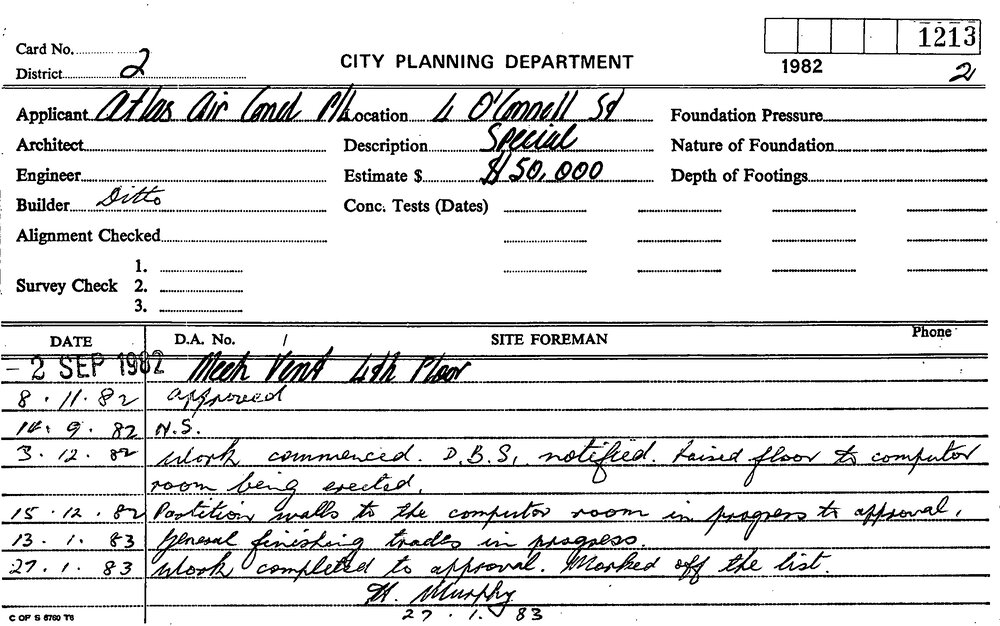 1213
Card No.
CITY PLANNING DEPARTMENT
1982
District 2
2
Applicant Atlas Air Cond P/L Location 4 O'Connell St Foundation Pressure
Architect Description Special Nature of Foundation
Engineer Estimate $ $150,000 Depth of Footings
Builder Ditto Conc. Tests (Dates)
Alignment Checked
1.
Survey Check 2.
3.
DATE D.A. No. / SITE FOREMAN Phone
- 2 SEP 1982 Mech Vent 4th Floor
8 . 11 . 82 approved
14 . 9 . 82 N.S.
3 . 12 . 82 Work commenced. D.B.S. notified. Raised floor to computor
room being erected.
15 . 12 . 82 Partition walls to the computor room in progress to approval.
13 . 1 . 83 General finishing trades in progress.
27 . 1 . 83 Work completed to approval. Marked off the list.
H. Murphy
27 . 1 . 83
C OF S 6760 T6